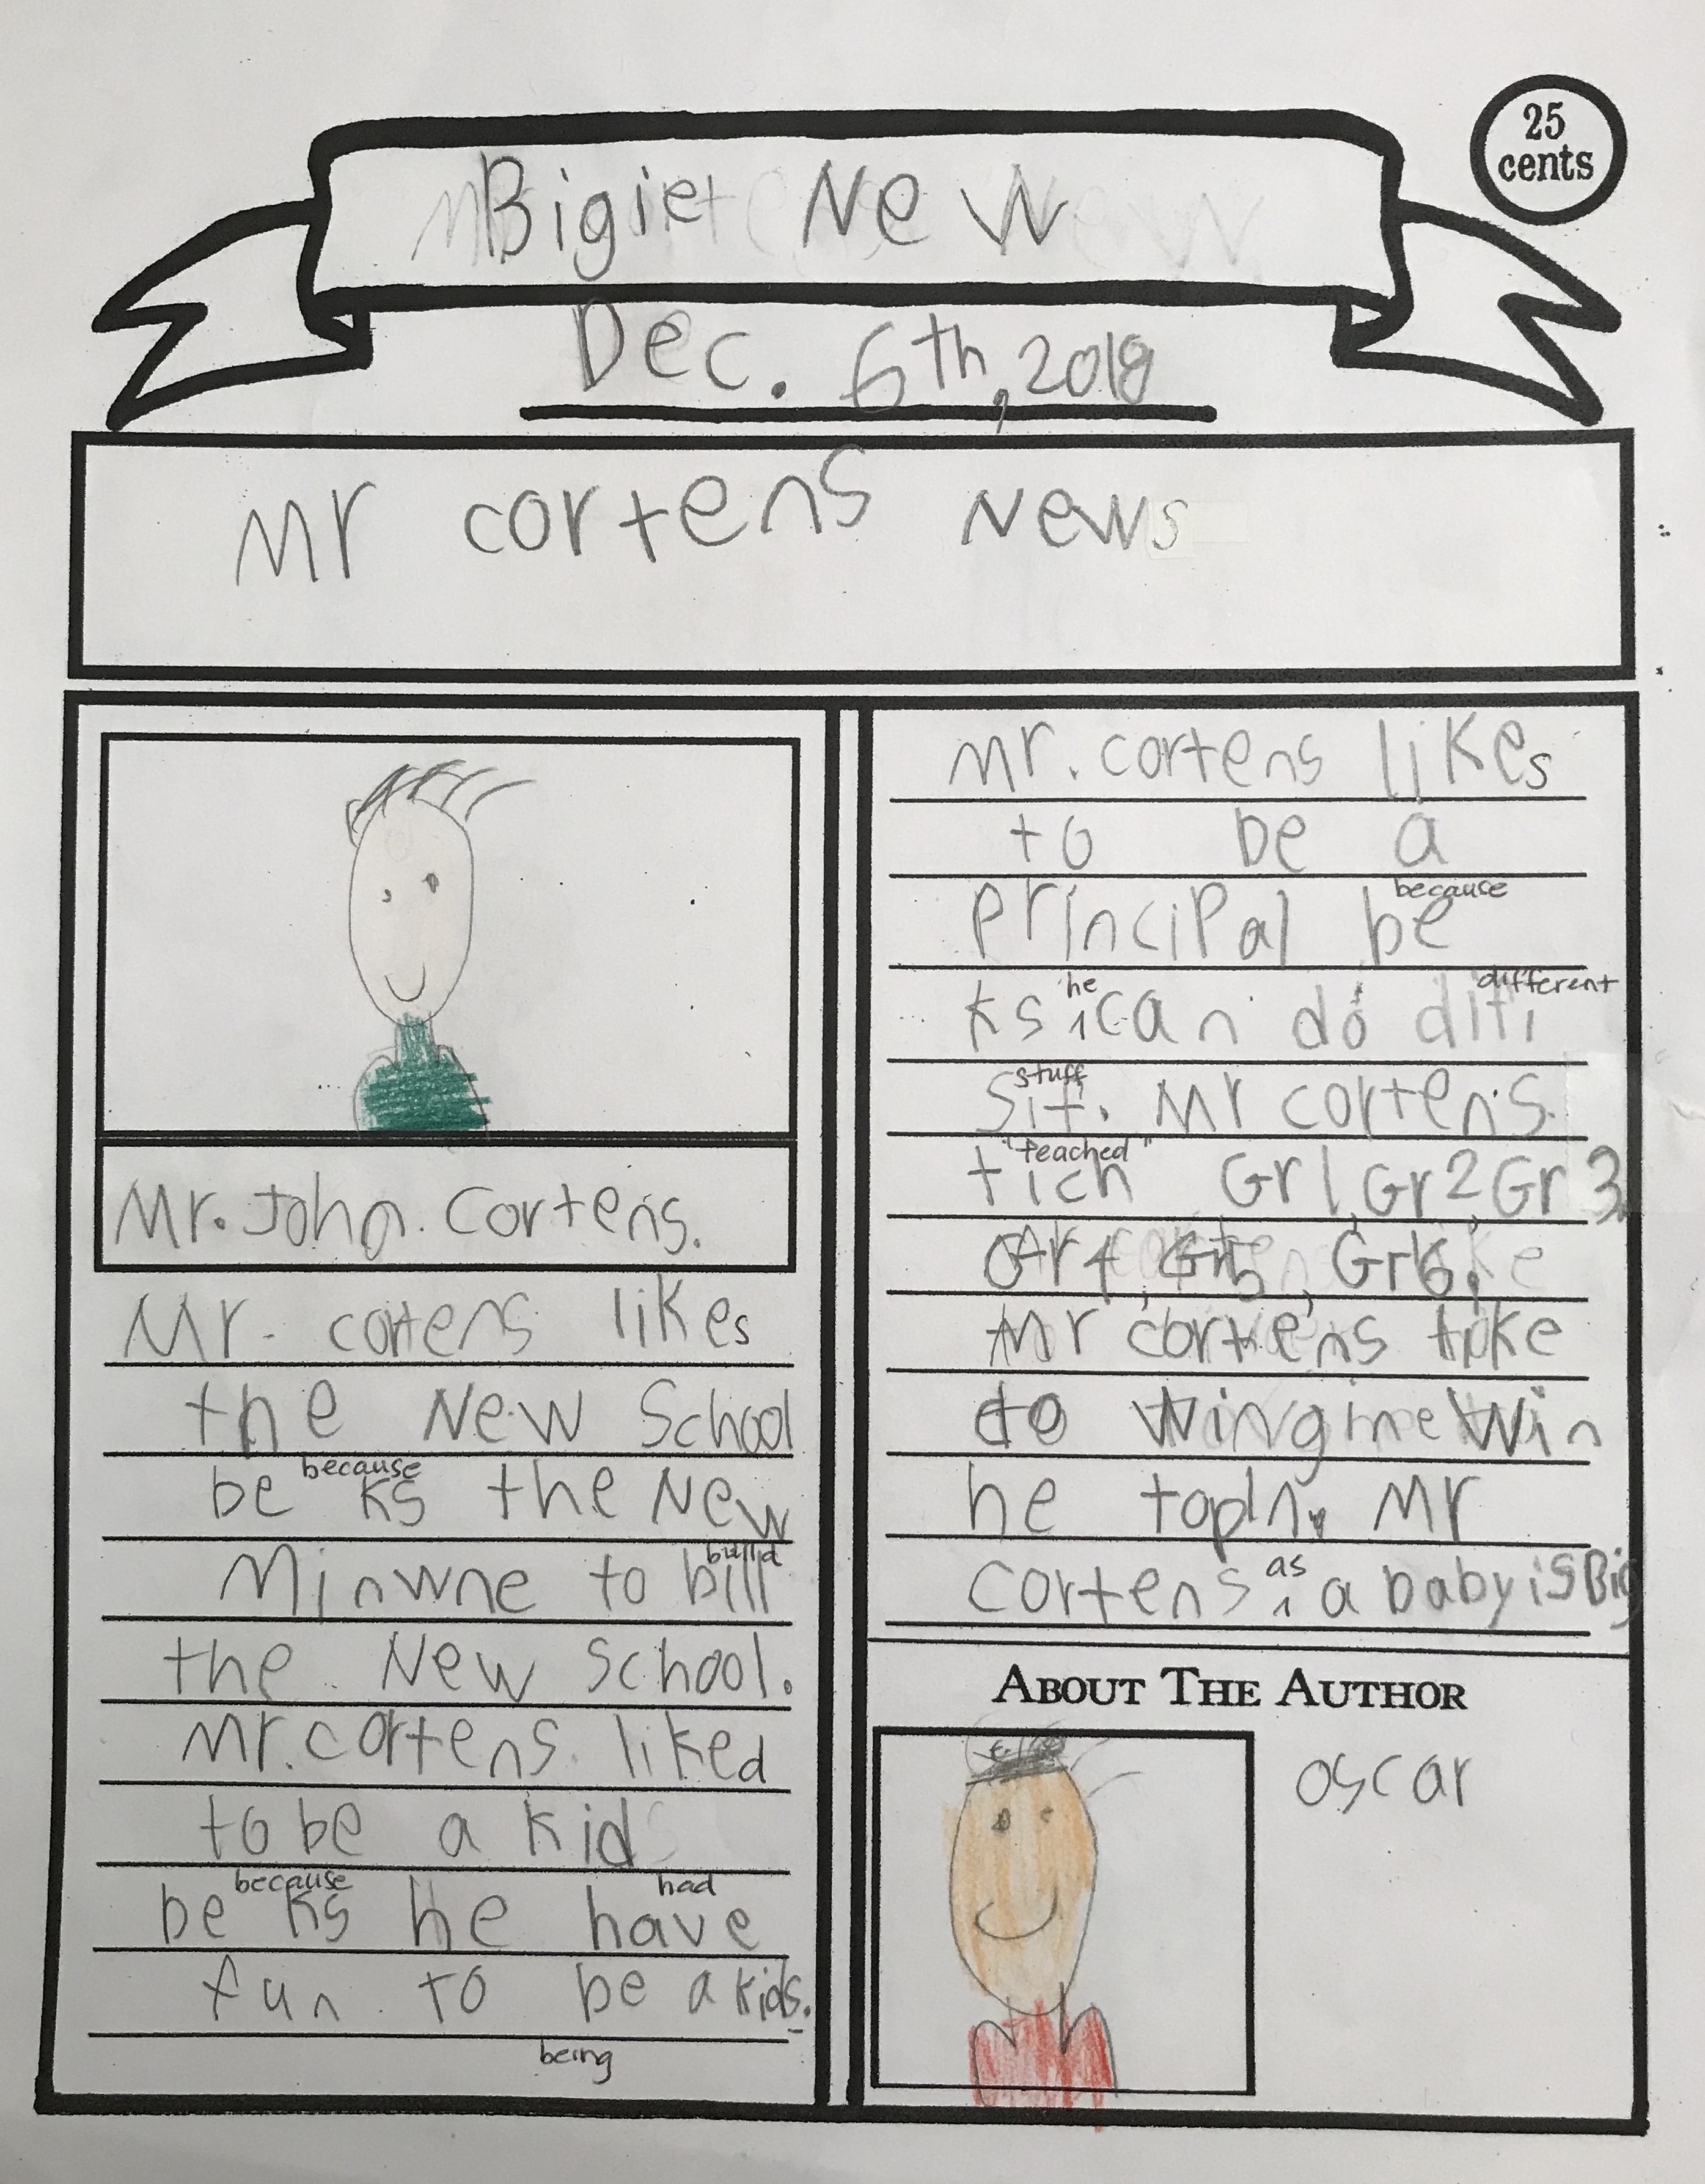 25
cents
Bigiet New
Dec. 6th, 2018
Mr cortens News
Mr. John. Cortens.
Mr. cortens likes
the New School
because
be ks the New
build
Minwne to bill
the New School.
Mr. cortens liked
to be a kid
because had
be ks he have
fun to be a kids.
being
Mr. cortens likes
to be a
because
principal be
he different
ks can do diti
stuff
sit. Mr cortens.
"teached"
tich Gr1, Gr2, Gr 3,
Gr4, Gr5, Gr6.
Mr cortens
do Win
he topln. Mr
as
cortens a baby is Big
ABOUT THE AUTHOR
oscar